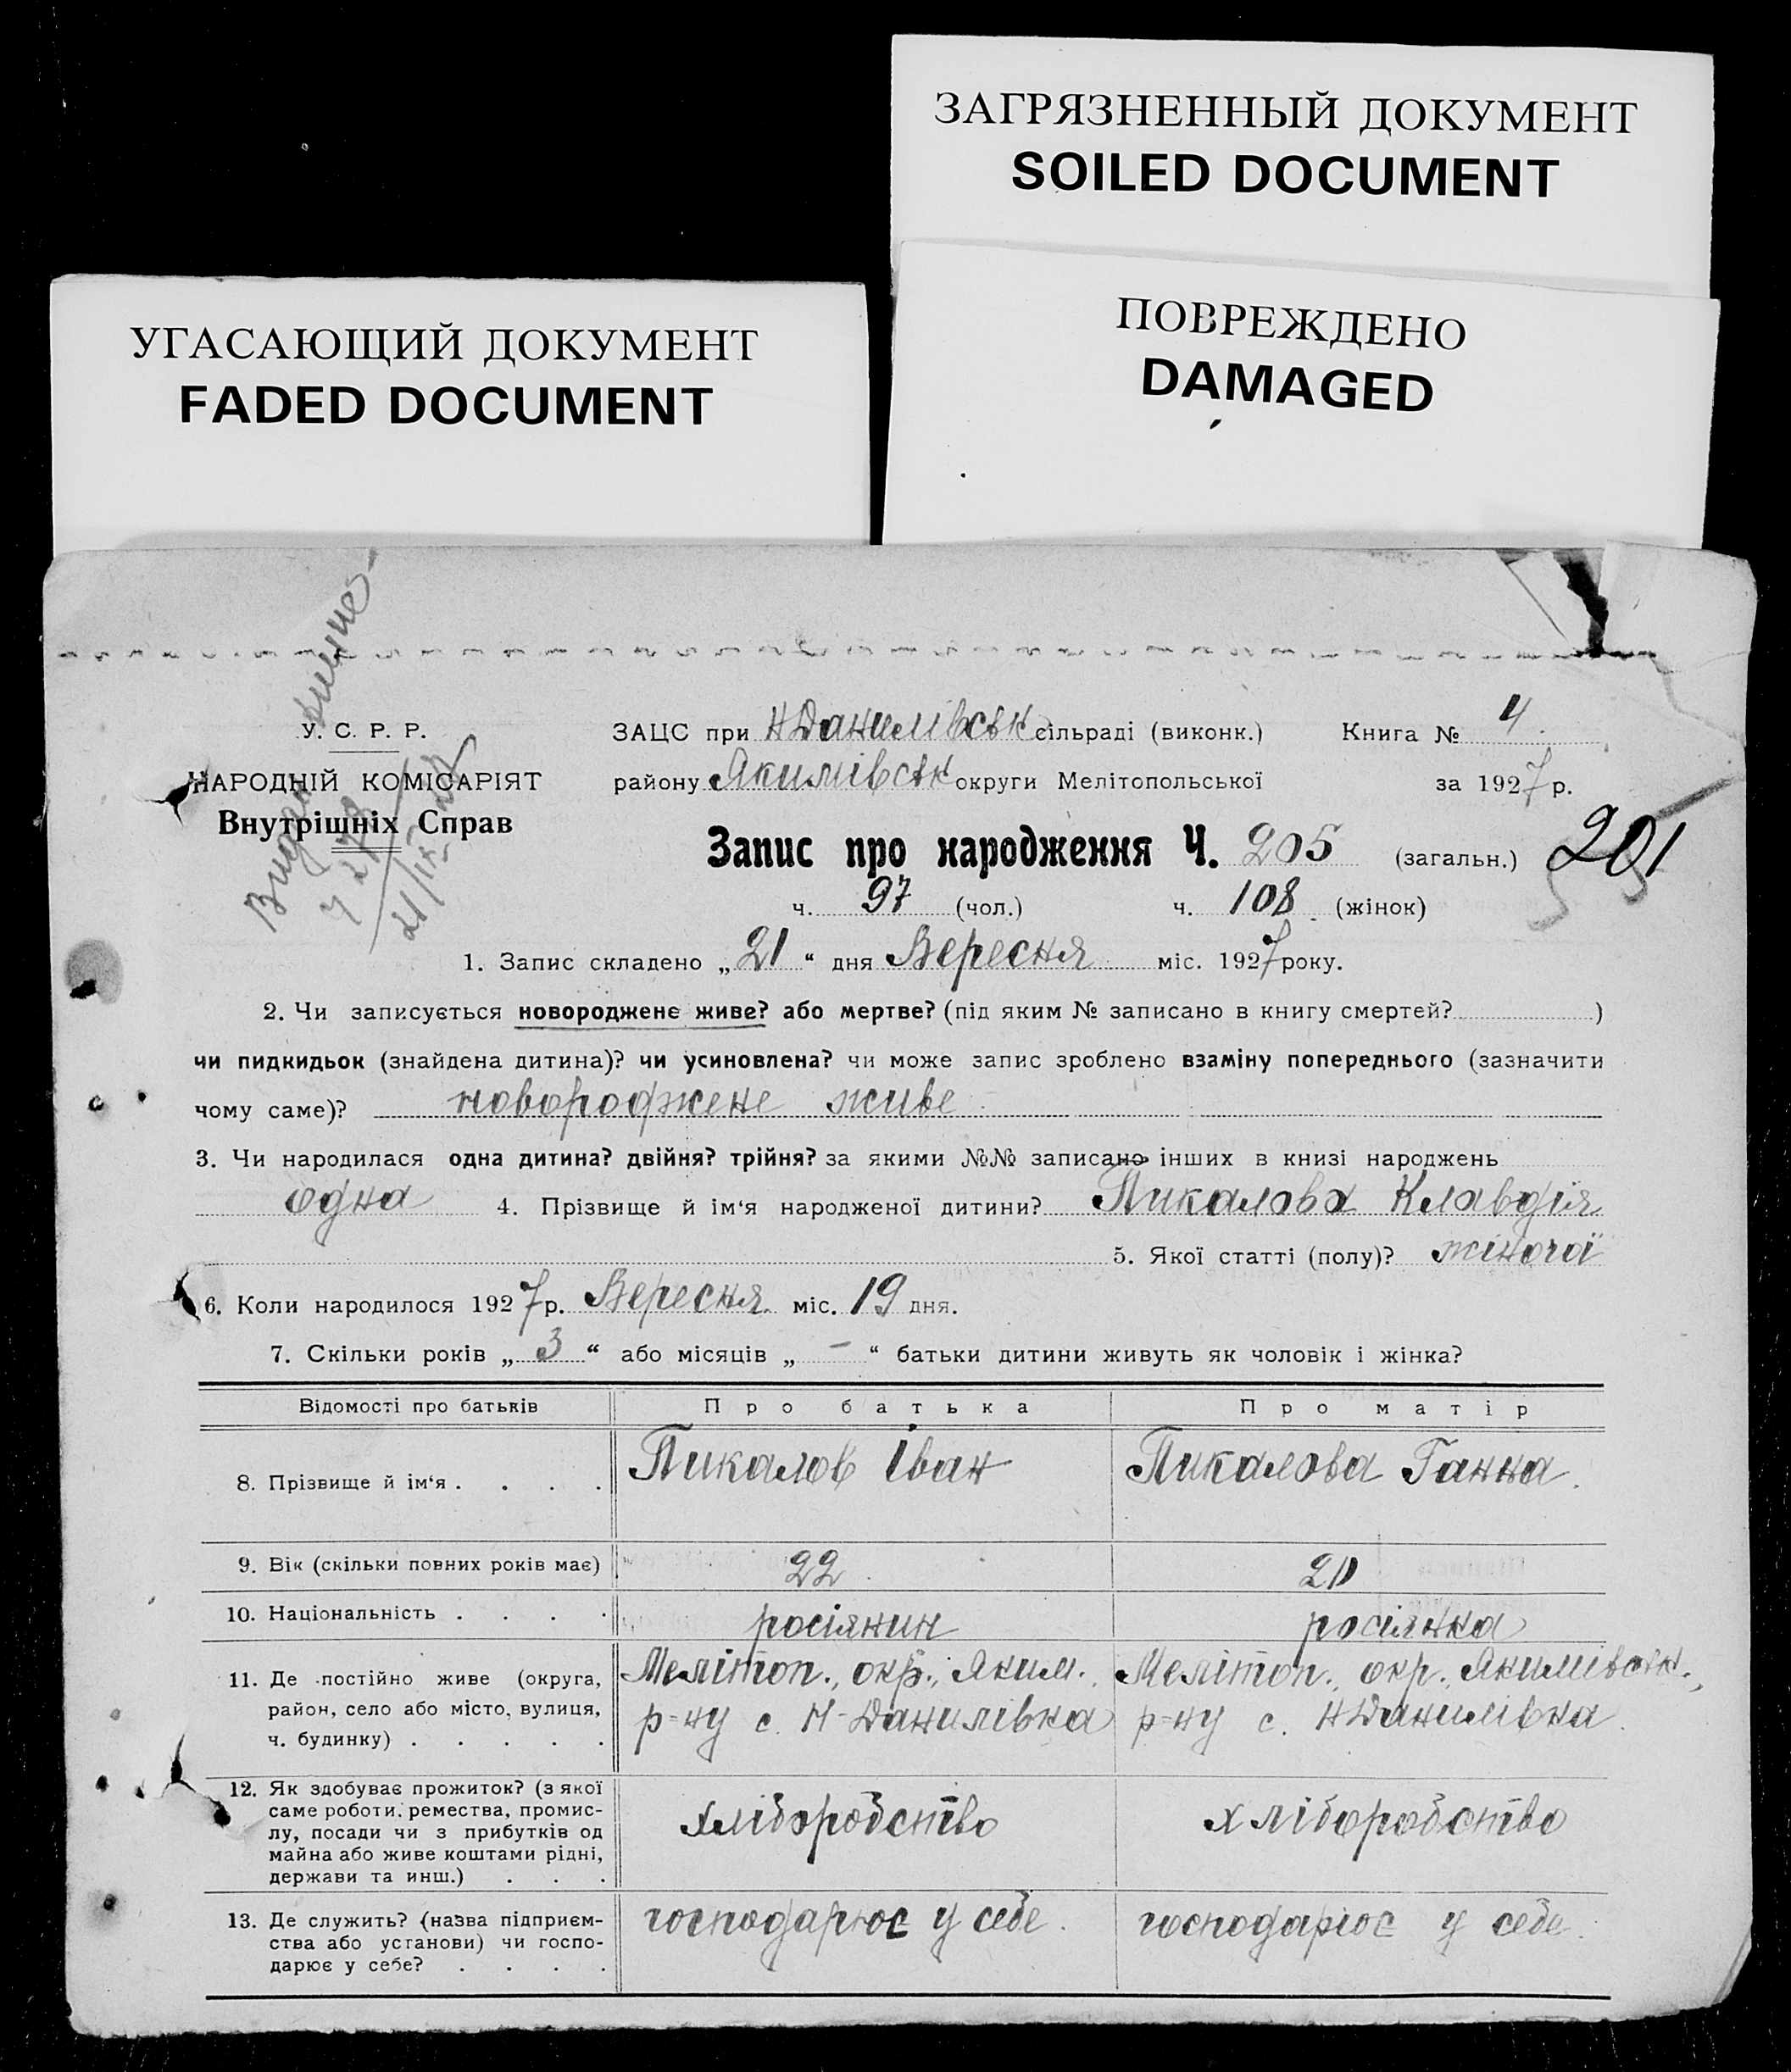 ЗАГРЯЗНЕННЫЙ ДОКУМЕНТ
SOILED DOCUMENT
УГАСАЮЩИЙ ДОКУМЕНТ
FADED DOCUMENT
ПОВРЕЖДЕНО
DAMAGED
У. С. Р. Р.
НАРОДНІЙ КОМІСАРІЯТ
Внутрішніх Справ
ЗАЦС при НДанилівськ сільраді (виконк.) Книга № 4.
району Якимівськ округи Мелітопольської за 1927 р.
Запис про народження Ч. 205 (загальн.) 201
ч. 97 (чол.) ч. 108 (жінок)
1. Запис складено „21“ дня Вересня міс. 1927 року.
2. Чи записується новороджене живе? або мертве? (під яким № записано в книгу смертей? )
чи пидкидьок (знайдена дитина)? чи усиновлена? чи може запис зроблено взаміну попереднього (зазначити
чому саме)? новороджене живе
3. Чи народилася одна дитина? двійня? трійня? за якими №№ записано інших в книзі народжень
одна 4. Прізвище й ім‘я народженої дитини? Пикалова Клавдія
5. Якої статті (полу)? жіночої
6. Коли народилося 1927 р. Вересня міс. 19 дня.
7. Скільки років „ 3 “ або місяців „ – “ батьки дитини живуть як чоловік і жінка?
Відомості про батьків Про батька Про матір
8. Прізвище й ім‘я . . . . Пикалов Іван Пикалова Ганна.
9. Вік (скільки повних років має) 22 20
10. Національність . . . . росіянин росіянка
11. Де постійно живе (округа, Меліто­п., окр., Яким. Мелітоп., окр., Якимівськ.,
район, село або місто, вулиця, р=ну с. Н-Данилівка р=ну с. НДанилівка
ч. будинку) . . . . .
12. Як здобуває прожиток? (з якої
саме роботи, ремества, промис-
лу, посади чи з прибутків од хліборобство хліборобство
майна або живе коштами рідні,
держави та инш.) . . .
13. Де служить? (назва підприєм- господарює у себе. господарює у себе.
ства або установи) чи госпо-
дарює у себе? . . . .